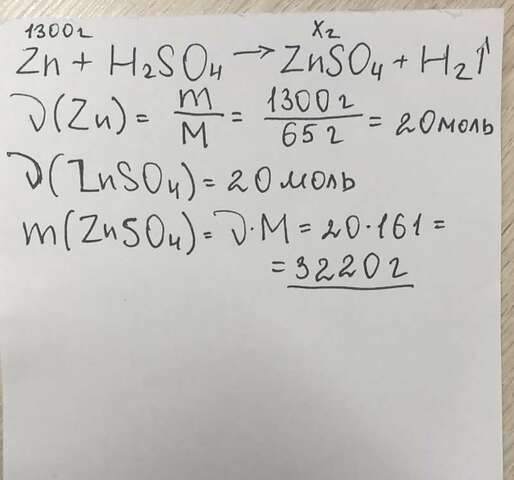 1300г xг
Zn + H2SO4 → ZnSO4 + H2↑
ν(Zn) = m/M = 1300г/65г = 20моль
ν(ZnSO4) = 20моль
m(ZnSO4) = ν·M = 20·161 =
= 3220г